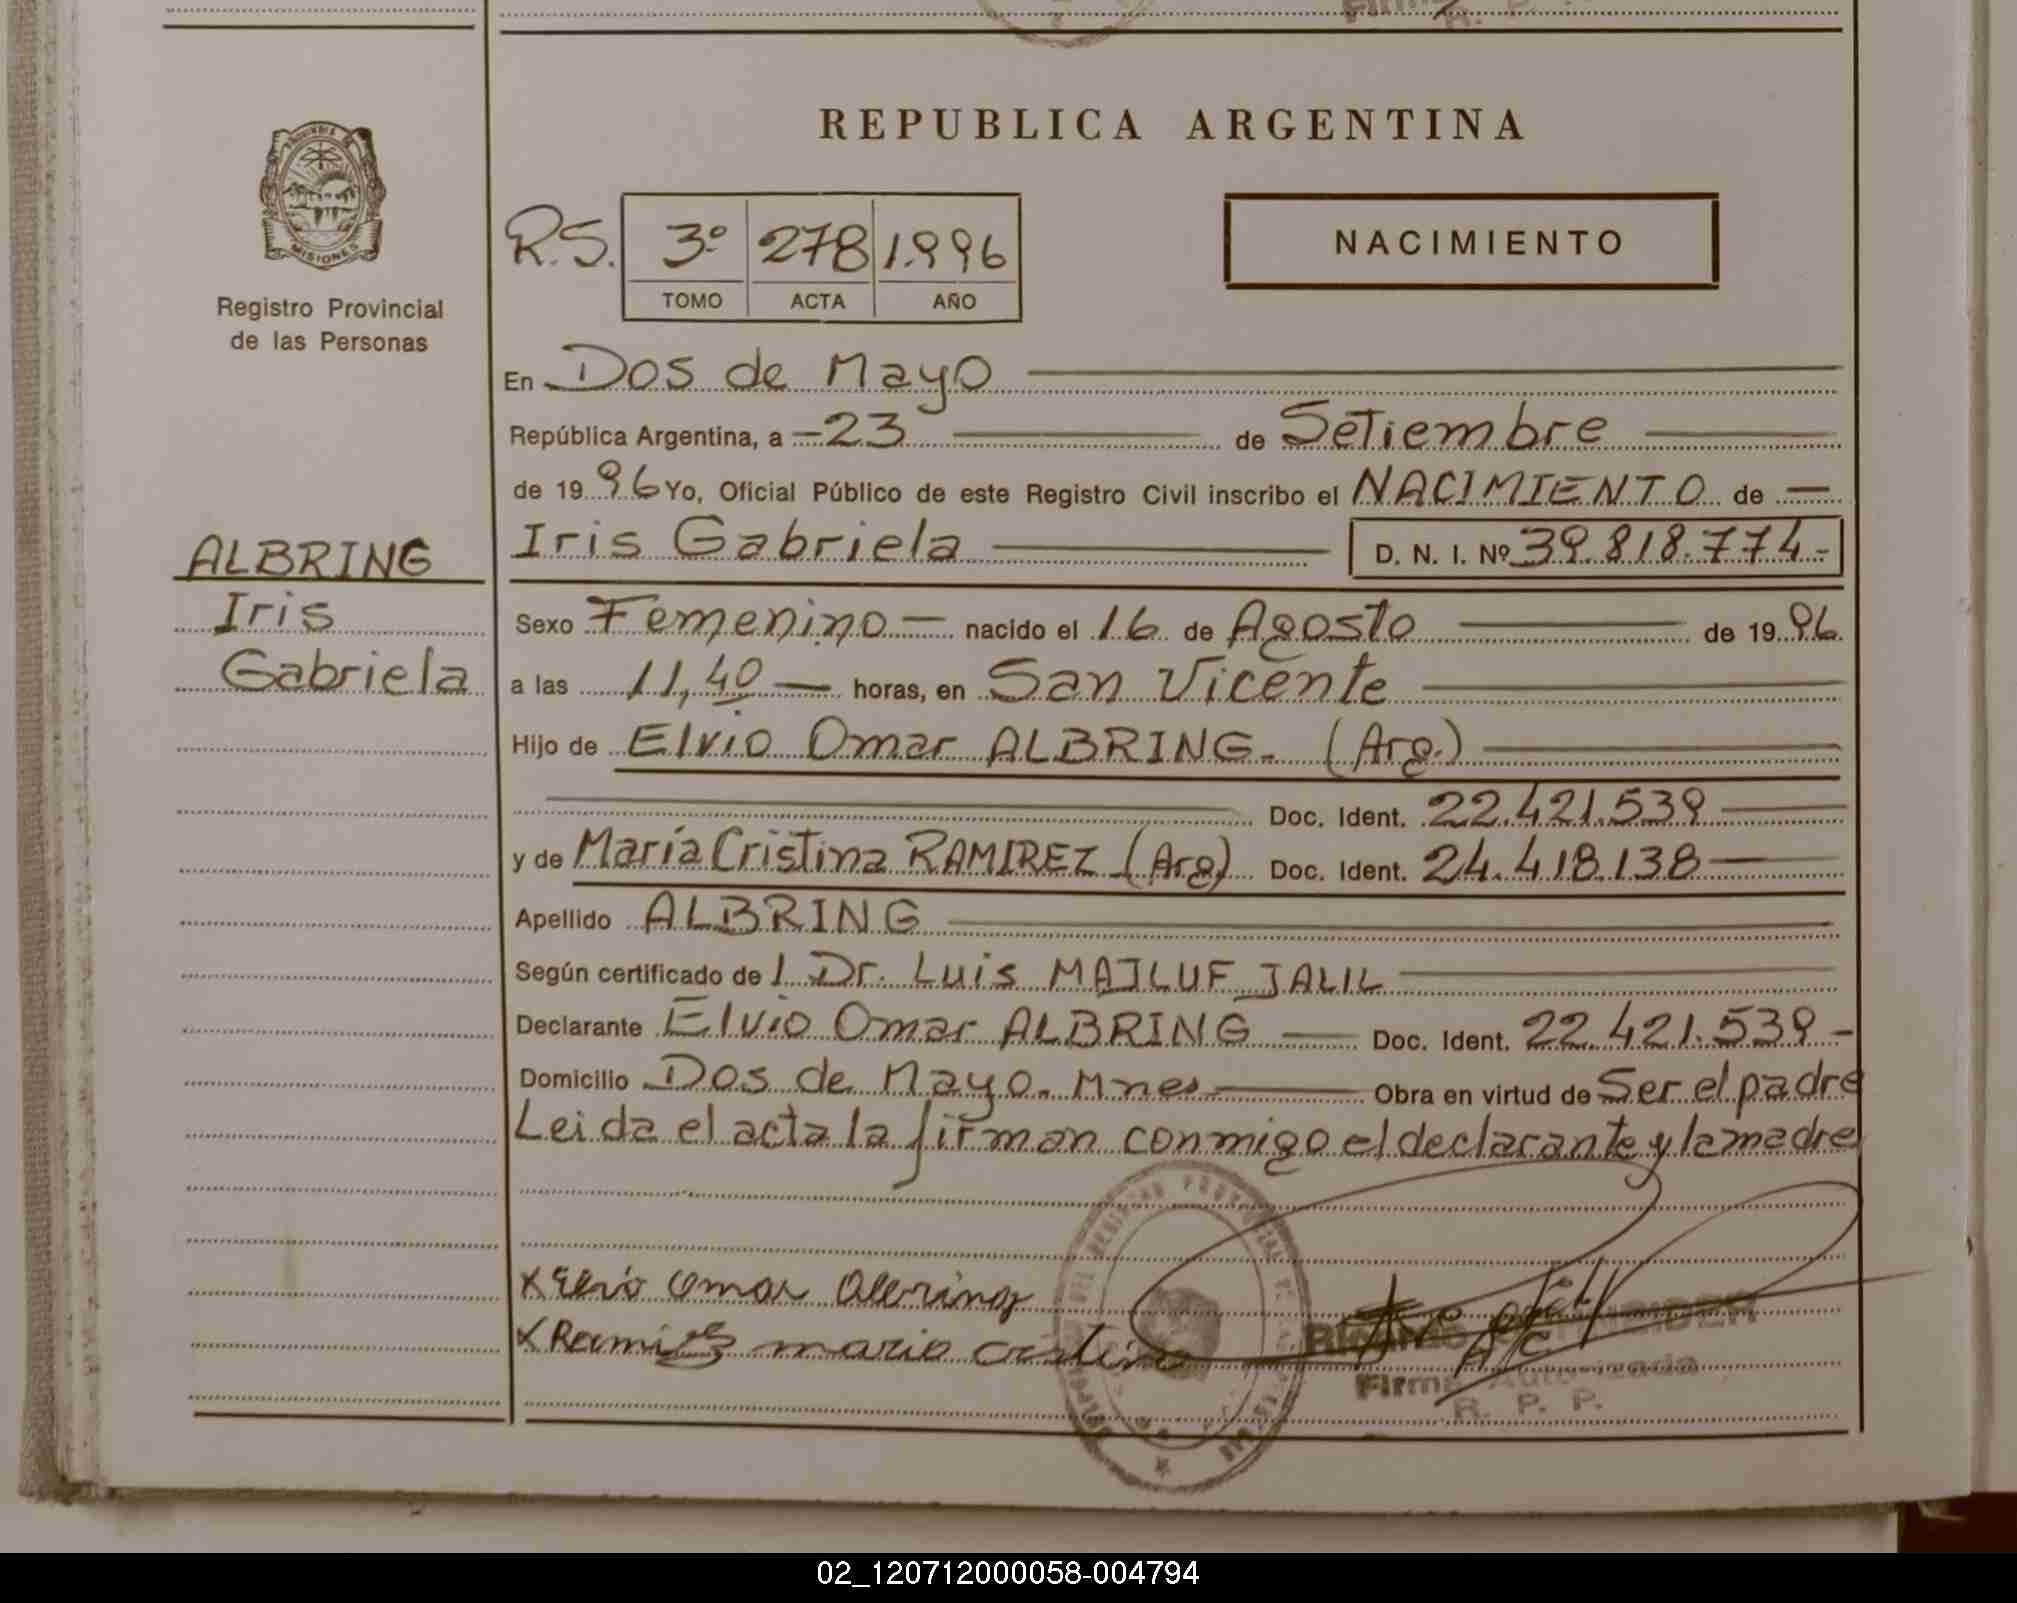 REPUBLICA ARGENTINA
MISIONES
Registro Provincial
de las Personas
R.S. 3º 278 1.996
TOMO ACTA AÑO
NACIMIENTO
En Dos de Mayo
República Argentina, a 23 de Setiembre
de 1996 Yo, Oficial Público de este Registro Civil inscribo el NACIMIENTO de
Iris Gabriela D. N. I. Nº 39.818.774-
ALBRING
Iris
Gabriela
Sexo Femenino nacido el 16 de Agosto de 1996
a las 11,40 horas, en San Vicente
Hijo de Elvio Omar ALBRING. (Arg.)
Doc. Ident. 22.421.539
y de María Cristina RAMIREZ (Arg) Doc. Ident. 24.418.138
Apellido ALBRING
Según certificado de l Dr. Luis MAJLUF JALIL
Declarante Elvio Omar ALBRING Doc. Ident. 22.421.539-
Domicilio Dos de Mayo. Mnes Obra en virtud de Ser el padre
Leida el acta la firman conmigo el declarante y la madre
x Elvio Omar Albring
x Ramirez maria cristina
Firma Autorizada
R. P. P.
02_120712000058-004794